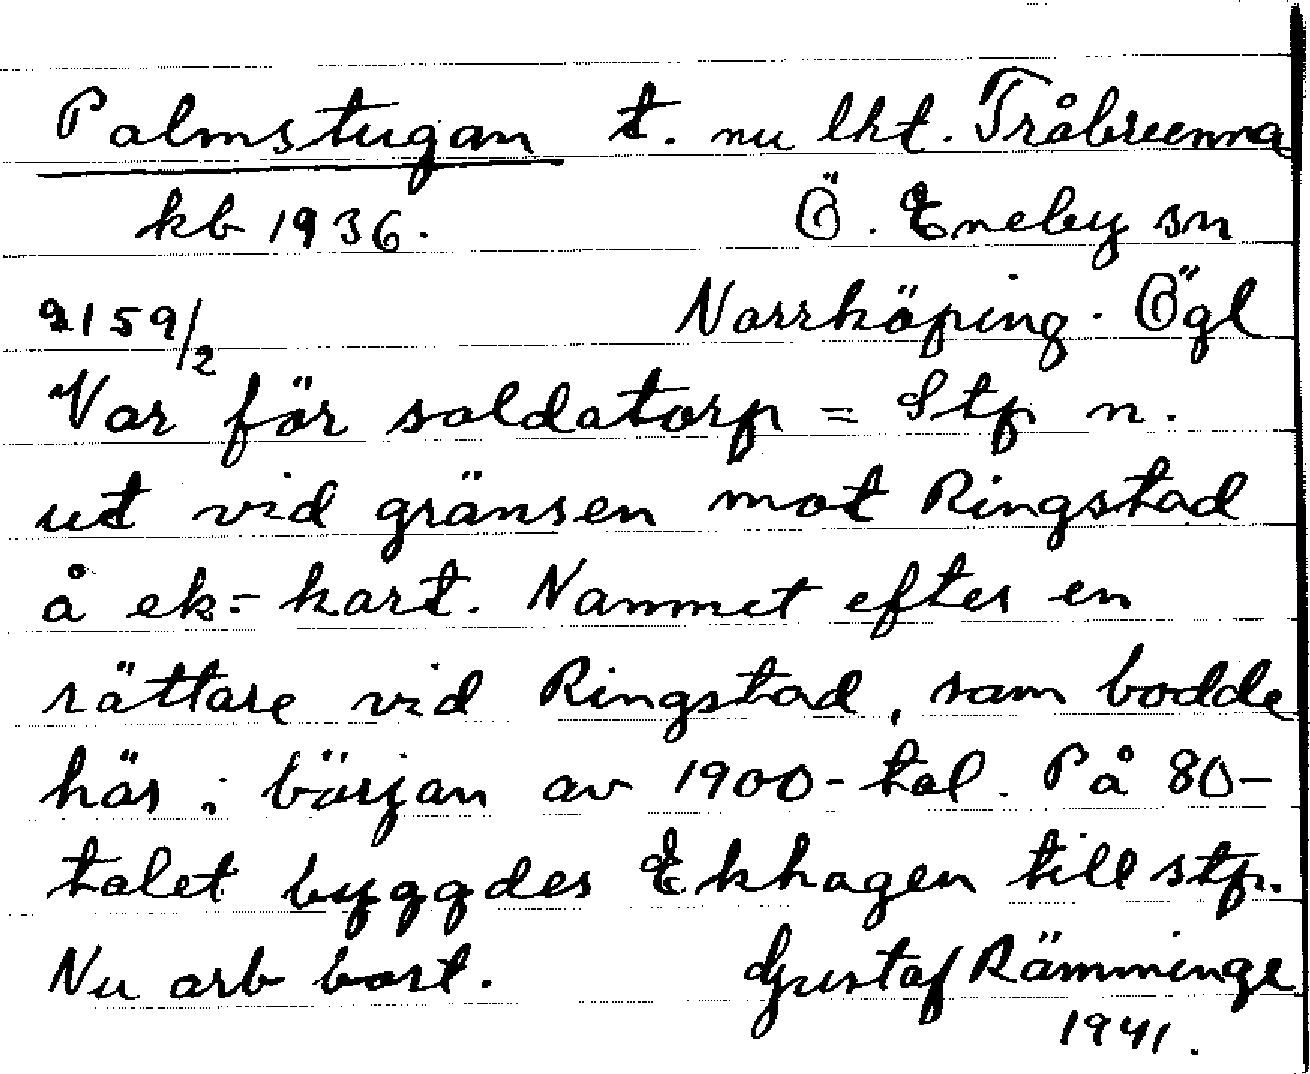 Palmstugan t. nu lht. Tråbrunna
kb 1936. Ö. Eneby sn
2159/2 Norrköping. Ögl
Var för soldatorp = Stp n.
ut vid gränsen mot Ringstad
å ek.- kart. Nammet efter en
rättare vid Ringstad, som bodde
här i början av 1900-tal. På 80-
talet byggdes Ekhagen till stp.
Nu arb bost. Gustaf Rämminge
1941.